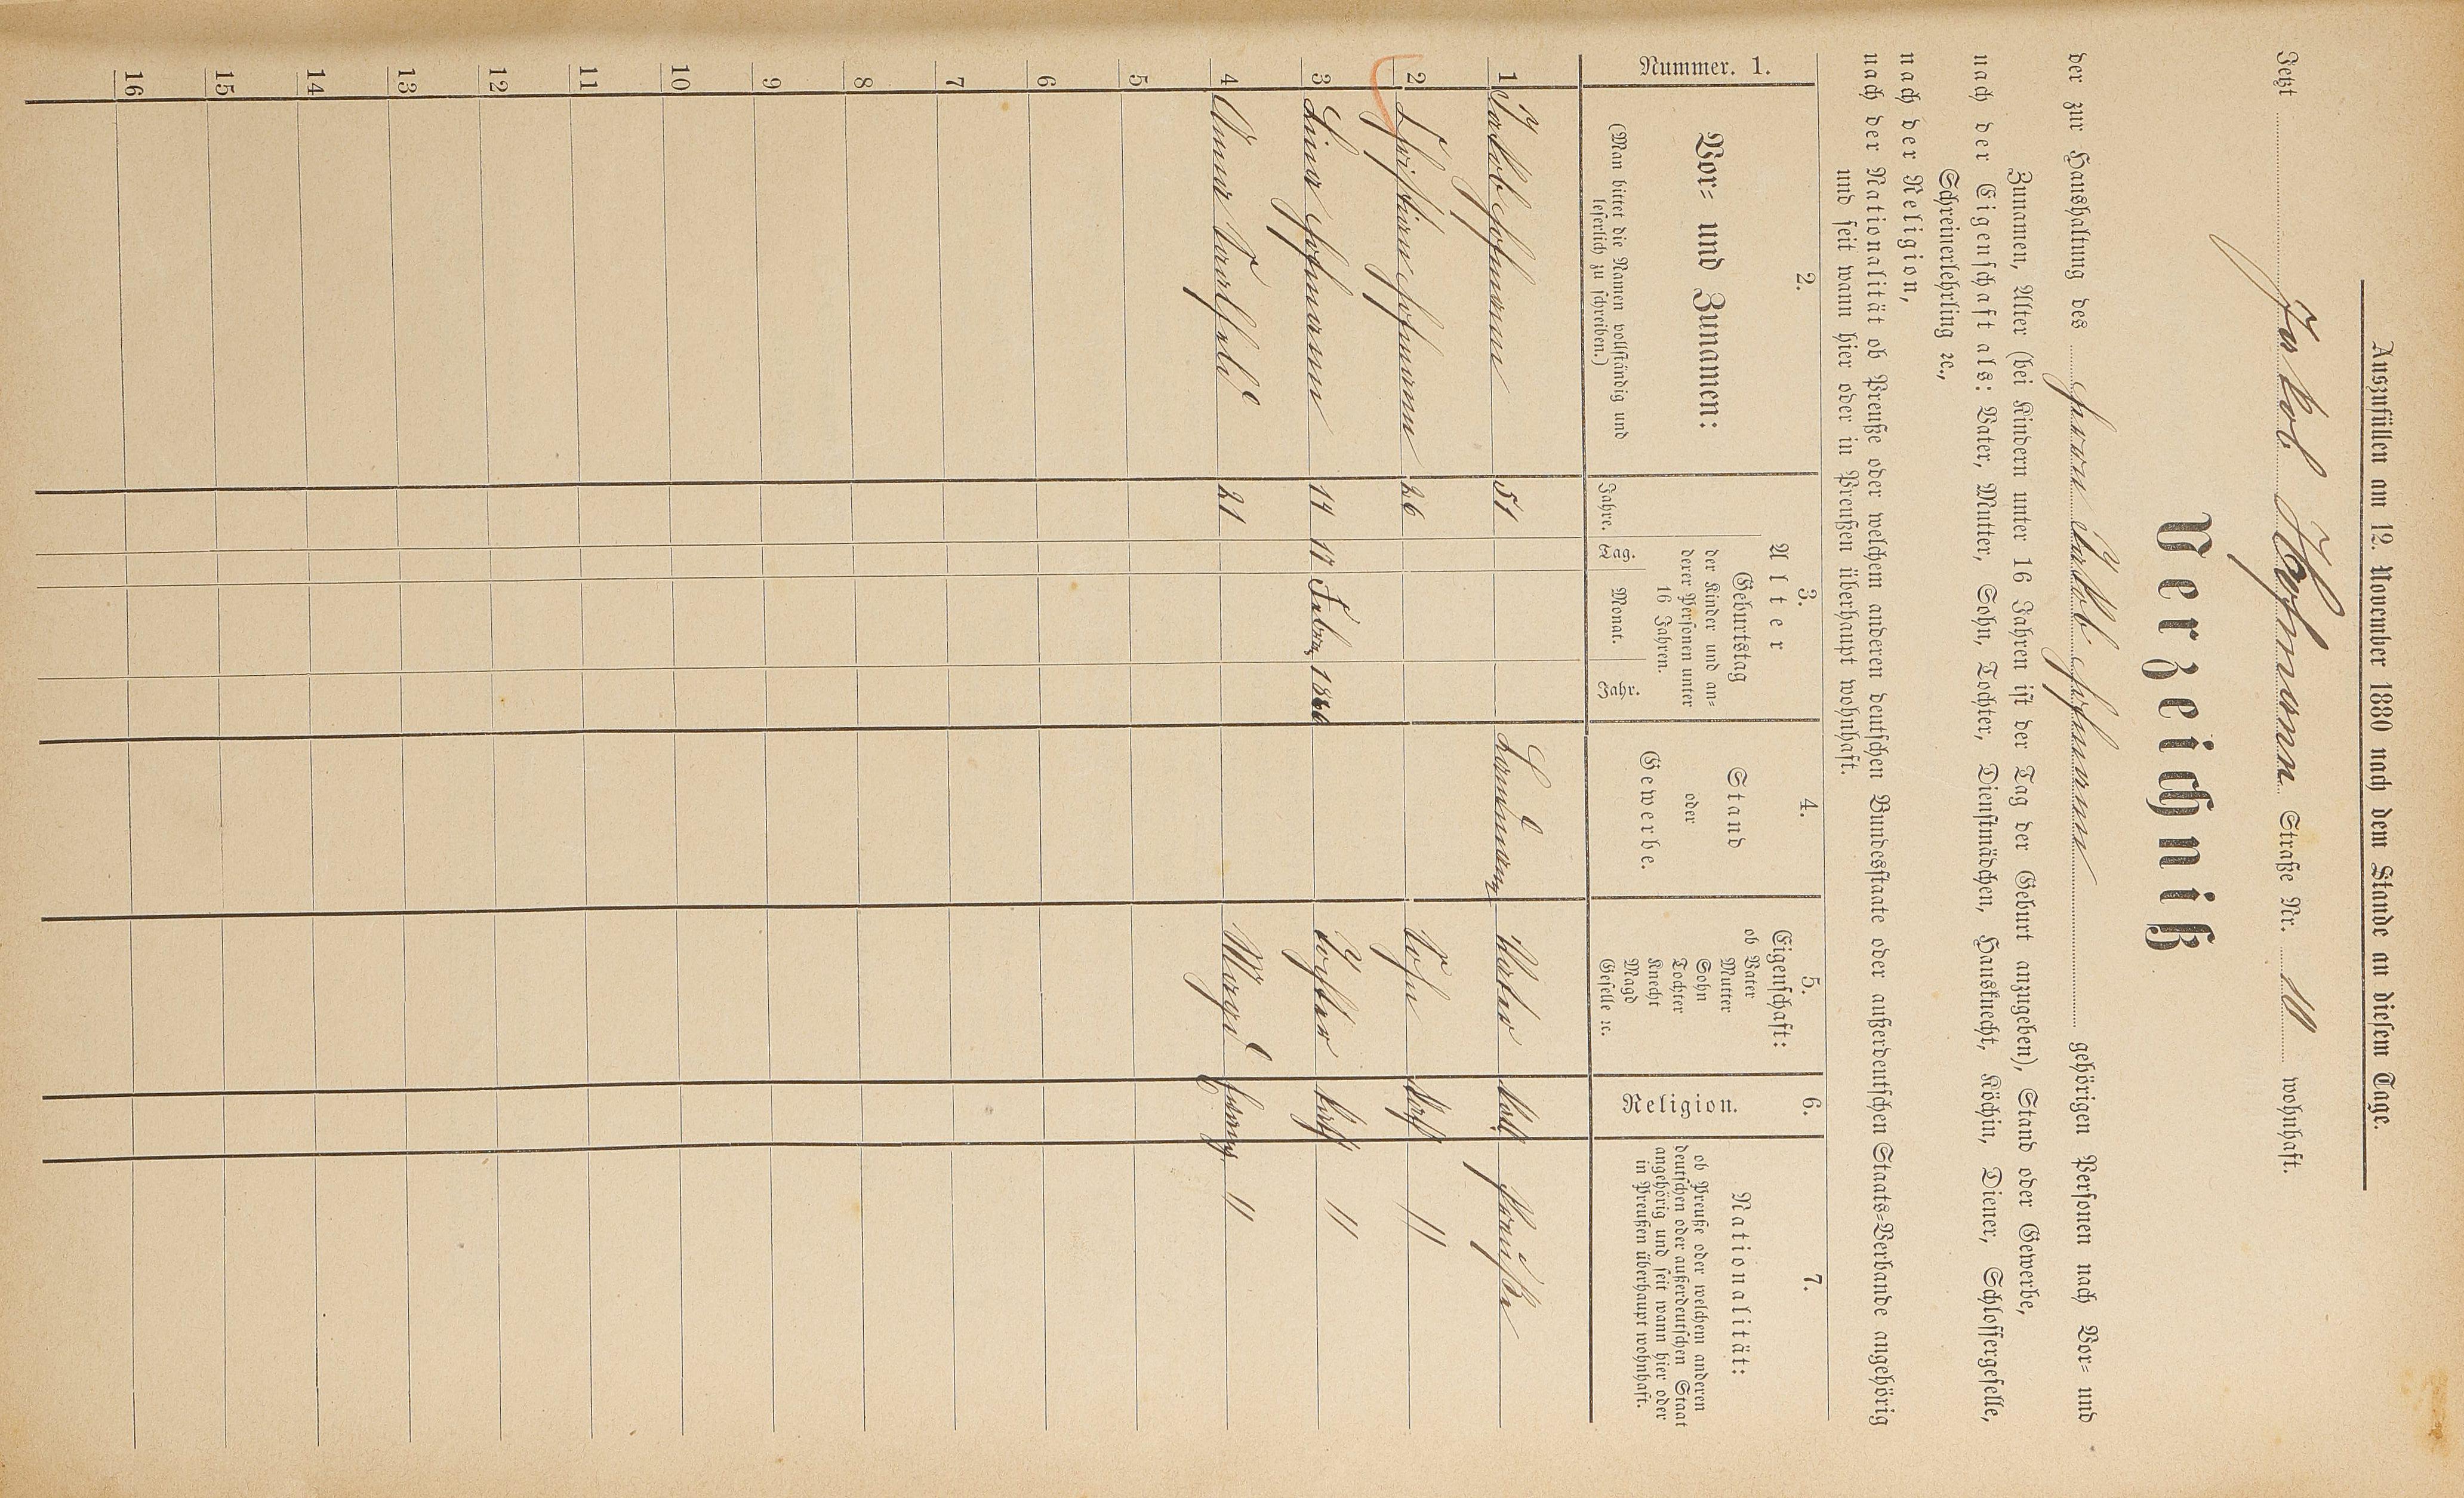 Auszufüllen am 12. November 1880 nach dem Stande an diesem Tage.
Jetzt Jakob Hofmann Straße Nr. 10 wohnhaft.
Verzeichniß
der zur Haushaltung des Herrn Jakob Hofmann gehörigen Personen nach Vor- und
Zunamen, Alter (bei Kindern unter 16 Jahren ist der Tag der Geburt anzugeben), Stand oder Gewerbe,
nach der Eigenschaft als: Vater, Mutter, Sohn, Tochter, Dienstmädchen, Hausknecht, Köchin, Diener, Schlossergeselle,
Schreinerlehrling ꝛc.,
nach der Religion,
nach der Nationalität ob Preuße oder welchem anderen deutschen Bundesstaate oder außerdeutschen Staats-Verbande angehörig
und seit wann hier oder in Preußen überhaupt wohnhaft.
Nummer. 1.
2.
Vor- und Zunamen:
(Man bittet die Namen vollständig und
leserlich zu schreiben.)
3.
Alter
Jahre.
Geburtstag
der Kinder und an-
derer Personen unter
16 Jahren.
Tag. Monat. Jahr.
4.
Stand
oder
Gewerbe.
5.
Eigenschaft:
ob Vater
Mutter
Sohn
Tochter
Knecht
Magd
Geselle ꝛc.
6.
Religion.
7.
Nationalität:
ob Preuße oder welchem anderen
deutschen oder außerdeutschen Staat
angehörig und seit wann hier oder
in Preußen überhaupt wohnhaft.
1 Jakob Hofmann 51 Landmann Vater kath Preuße
2 Christian Hofmann 26 Sohn kath "
3 Lina Hofmann 14 17 Febru 1866 Tochter kath "
4 Anna 21 Magd evang. "
5
6
7
8
9
10
11
12
13
14
15
16